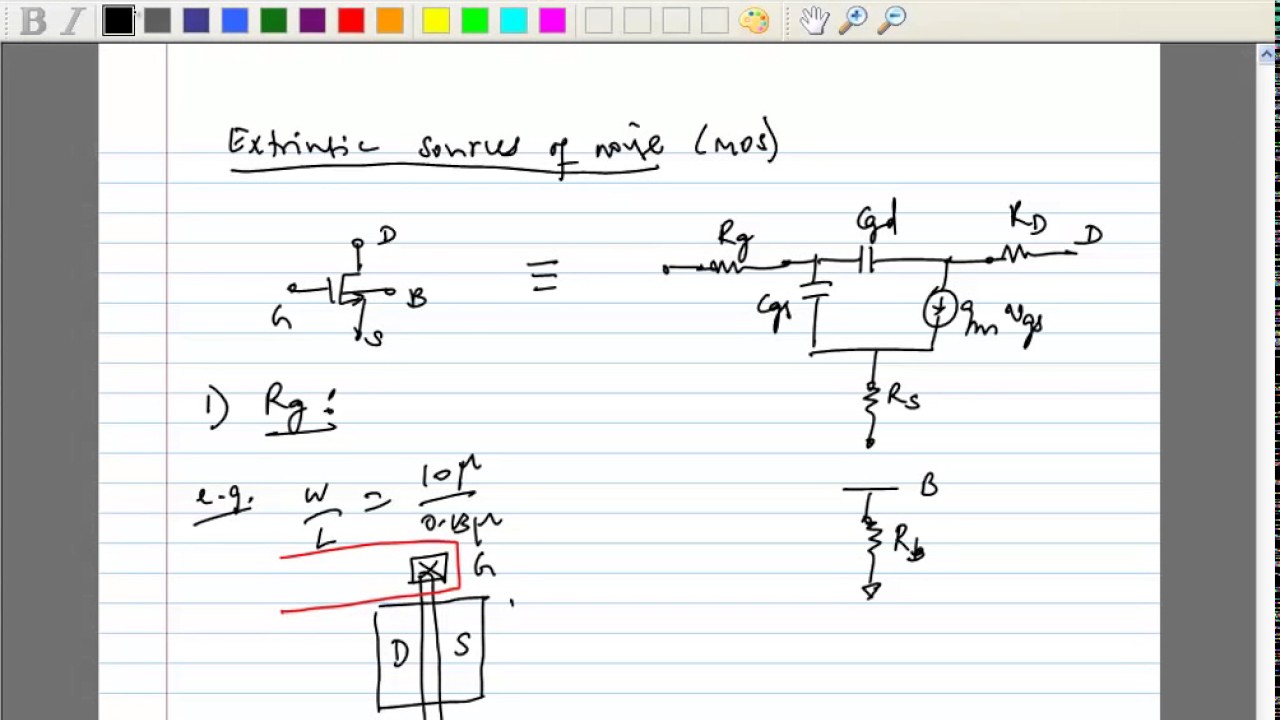 B I
Extrinsic sources of noise (MOS)
D
G
B
S
≡
Rg
Cgd
RD
D
Cgs
gm vgs
Rs
B
Rb
1) Rg :
e.g. W/L = 10μ/0.13μ
G
D S